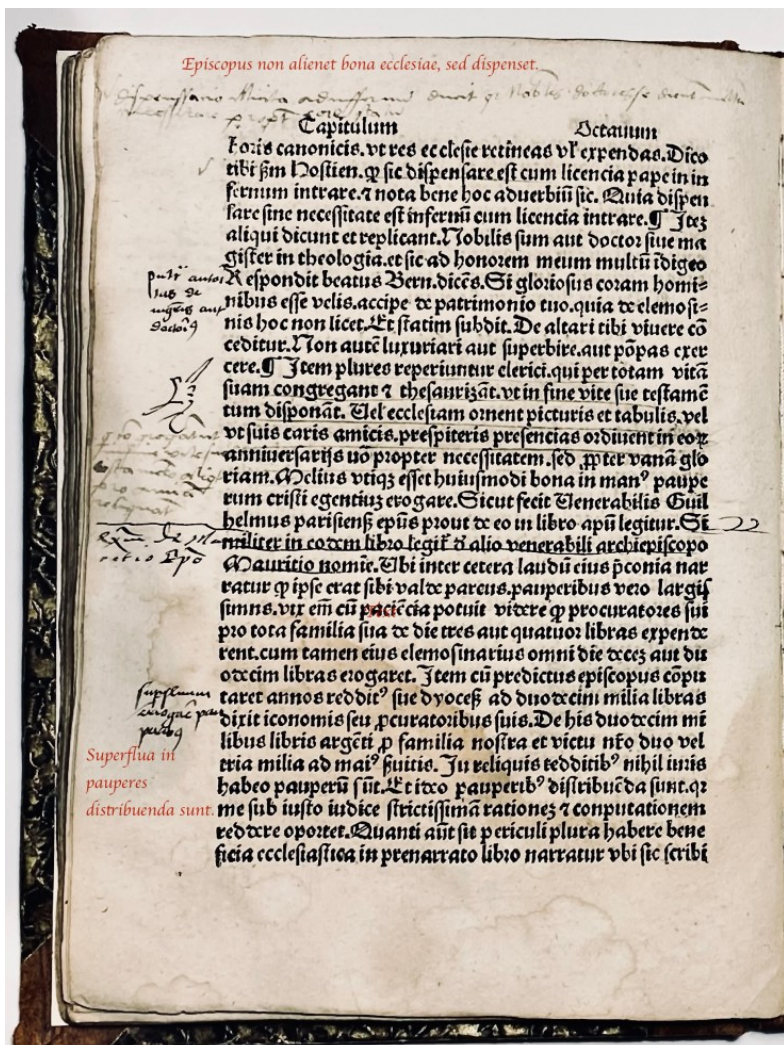 Episcopus non alienet bona ecclesiae, sed dispenset.
Capitulum Octauum
foris canonicis.vt res ecclesie retineas vl' expendas.Dico
tibi scd'm Hostien.ꝙ sic dispensare est cum licencia pape in in
fernum intrare.⁊ nota bene hoc aduerbiū sic. Quia dispen
sare sine necessitate est infernū cum licencia intrare.¶ Itez
aliqui dicunt et replicant.Nobilis sum aut doctor siue ma
gister in theologia.et sic ad honorem meum multū īdigeo
Respondit beatus Bern.dicēs.Si gloriosus coram homi-
nibus esse velis.accipe de patrimonio tuo.quia de elemosi-
nis hoc non licet.Et statim subdit.De altari tibi viuere cō
ceditur.Non autē luxuriari aut superbire.aut pōpas exer
cere.¶ Item plures reperiuntur clerici.qui per totam vitā
suam congregant ⁊ thesaurizāt.vt in fine vite sue testamē
tum disponāt. Uel ecclesiam ornent picturis et tabulis.vel
vt suis caris amicis.prespiteris presencias ordinent in eoꝝ
anniuersarijs nō propter necessitatem.sed ꝓpter vanā glo
riam.Melius vtiqꝫ esset huiusmodi bona in manꝰ paupe
rum cristi egentiuz erogare.Sicut fecit Uenerabilis Guil
helmus parisienß ep̄us prout de eo in libro apū legitur.Si
militer in eodem libro legit' d' alio venerabili archiepiscopo
Mauritio nomīe.Ubi inter cetera laudū eius p̄conia nar
ratur ꝙ ipse erat sibi valde parcus.pauperibus vero largis
simus.vix em̄ cū paciēcia potuit videre ꝙ procuratores sui
pro tota familia sua de die tres aut quatuor libras expende
rent.cum tamen eius elemosinarius omni die decez aut du
odecim libras erogaret. Item cū predictus episcopus cōpu
taret annos redditꝰ sue dyoceß ad duodecim milia libras
dixit iconomis seu ꝓcuratoribus suis.De his duodecim mi
libus libris argēti ꝓ familia nostra et victu nr̄o duo vel
tria milia ad maiꝰ suitis. In reliquis redditibꝰ nihil iuris
habeo pauperū sūt.Et ideo pauperibꝰ distribuēda sunt.qr
me sub iusto iudice strictissimā rationez ⁊ conputationem
reddere oportet.Quanti aūt sit periculi plura habere bene
ficia ecclesiastica in prenarrato libro narratur vbi sic scribi
Superflua in
pauperes
distribuenda sunt.